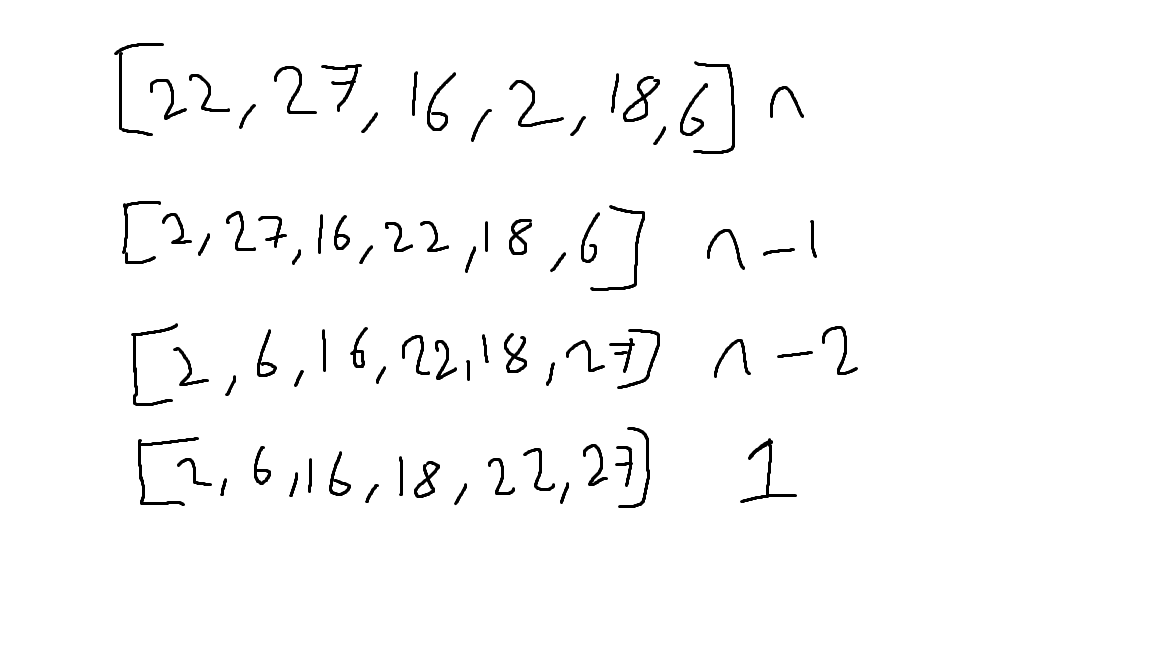 [22, 27, 16, 2, 18, 6] n
[2, 27, 16, 22, 18, 6] n-1
[2, 6, 16, 22, 18, 27] n-2
[2, 6, 16, 18, 22, 27] 1